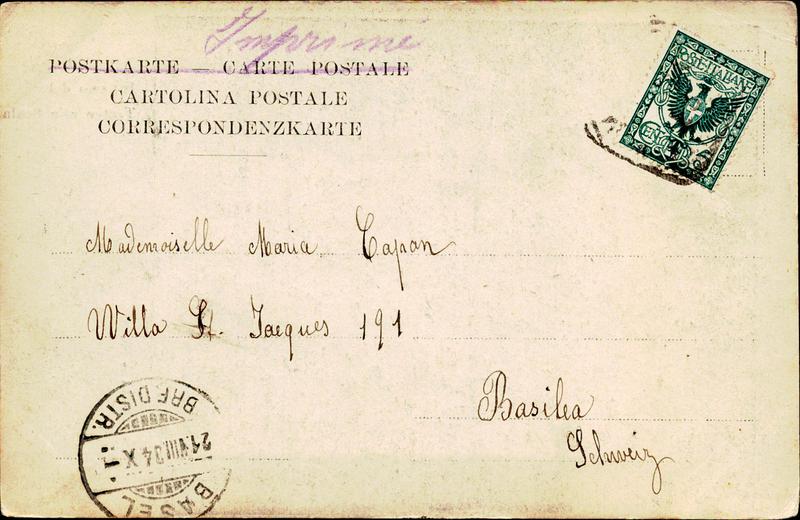 Imprimé
POSTKARTE — CARTE POSTALE
CARTOLINA POSTALE
CORRESPONDENZKARTE
POSTE ITALIANE
CENT. 5
Mademoiselle Maria Capan
Willa St. Jacques 191
Basilea
Schweiz
BASEL
BRF.DISTR.